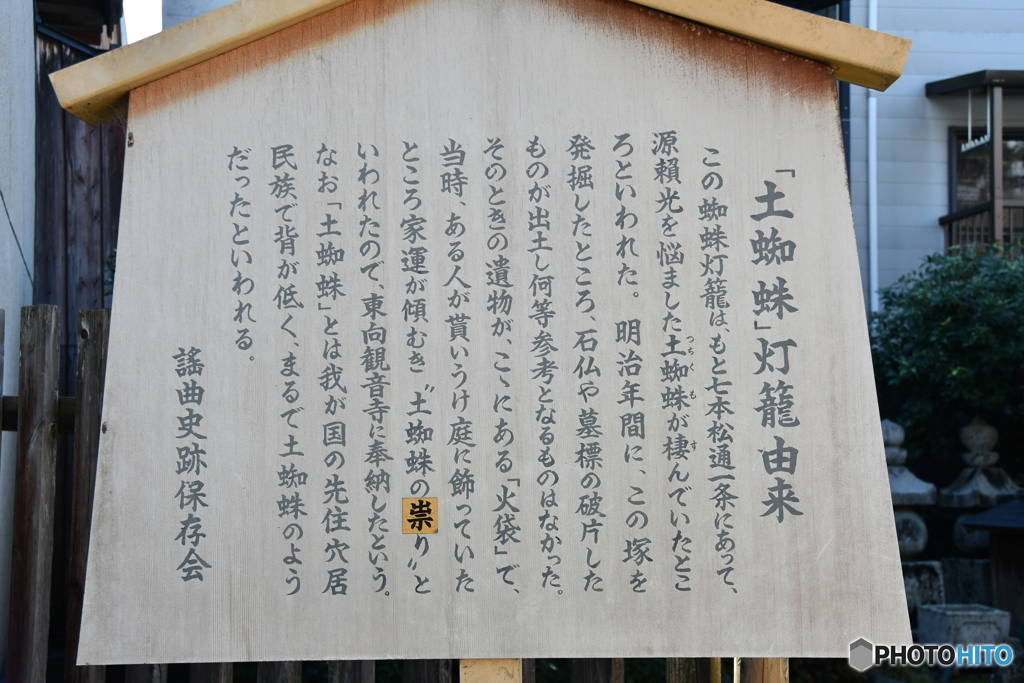 「土蜘蛛」灯籠由来
この蜘蛛灯籠は、もと七本松通一条にあって、
源頼光を悩ました土蜘蛛が棲んでいたとこ
つちぐも
す
ろといわれた。明治年間に、この塚を
発掘したところ、石仏や墓標の破片した
ものが出土し何等参考となるものはなかった。
そのときの遺物が、こゝにある「火袋」で、
当時、ある人が貰いうけ庭に飾っていた
ところ家運が傾むき〝土蜘蛛の祟り〟と
いわれたので、東向観音寺に奉納したという。
なお「土蜘蛛」とは我が国の先住穴居
民族で背が低く、まるで土蜘蛛のよう
だったといわれる。
謡曲史跡保存会
PHOTOHITO